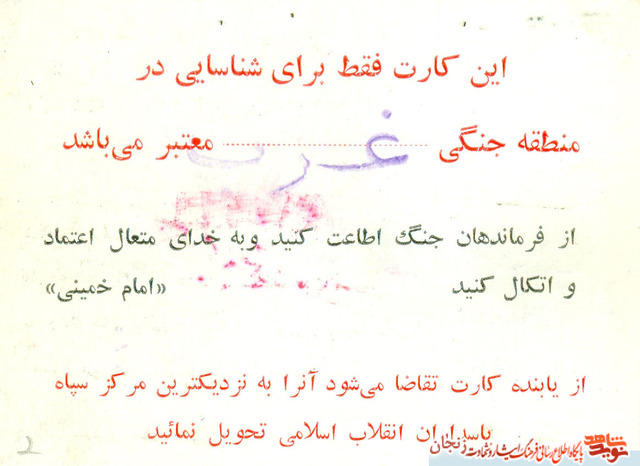 این کارت فقط برای شناسایی در
منطقه جنگی غرب معتبر می‌باشد
از فرماندهان جنگ اطاعت کنید وبه خدای متعال اعتماد
و اتکال کنید «امام خمینی»
از یابنده کارت تقاضا می‌شود آنرا به نزدیکترین مرکز سپاه
پاسداران انقلاب اسلامی تحویل نمائید
2
نوید شاهد پایگاه اطلاع رسانی فرهنگ ایثار و شهادت زنجان